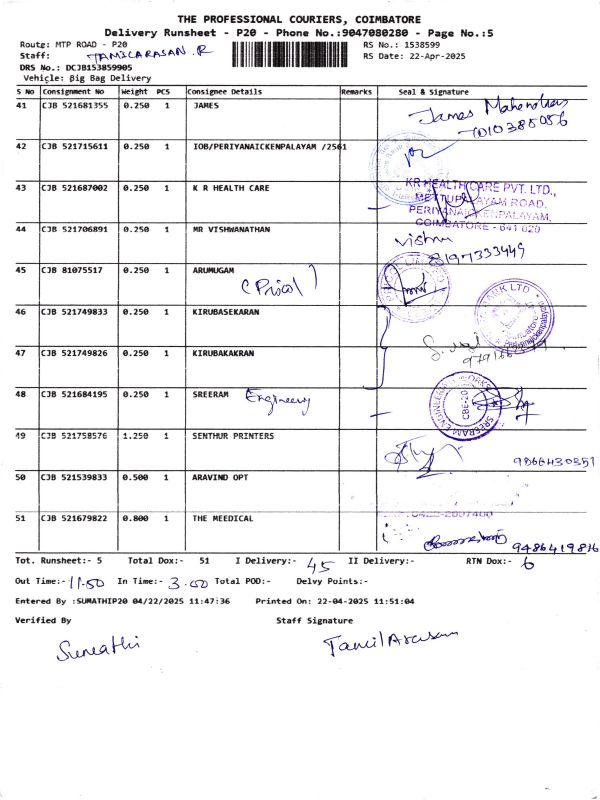 THE PROFESSIONAL COURIERS, COIMBATORE
Delivery Runsheet - P20 - Phone No.:9047080280 - Page No.:5
Route: MTP ROAD - P20 RS No.: 1538599
Staff: TAMILARASAN.R RS Date: 22-Apr-2025
DRS No.: DCJB153859905
Vehicle: Big Bag Delivery
S No Consignment No Weight PCS Consignee Details Remarks Seal & Signature
41 CJB 521681355 0.250 1 JAMES James
42 CJB 521715611 0.250 1 IOB/PERIYANAICKENPALAYAM /2561
43 CJB 521687002 0.250 1 K R HEALTH CARE
KR HEALTH CARE PVT. LTD.,
METTUPALAYAM ROAD,
PERIYANAICKENPALAYAM,
COIMBATORE - 641 020
44 CJB 521706891 0.250 1 MR VISHWANATHAN Vishnu
8197333449
45 CJB 81075517 0.250 1 ARUMUGAM (Pricol)
46 CJB 521749833 0.250 1 KIRUBASEKARAN
47 CJB 521749826 0.250 1 KIRUBAKAKRAN
48 CJB 521684195 0.250 1 SREERAM Engineery
SREERAM ENGINEERING WORKS
CBE-20
49 CJB 521758576 1.250 1 SENTHUR PRINTERS 9866430351
50 CJB 521539833 0.500 1 ARAVIND OPT
51 CJB 521679822 0.800 1 THE MEEDICAL
9486419876
Tot. Runsheet:- 5 Total Dox:- 51 I Delivery:- 45 II Delivery:- RTN Dox:- 6
Out Time:- 11.50 In Time:- 3.00 Total POD:- Delvy Points:-
Entered By :SUMATHIP20 04/22/2025 11:47:36 Printed On: 22-04-2025 11:51:04
Verified By Staff Signature
Sumathi TamilArasan